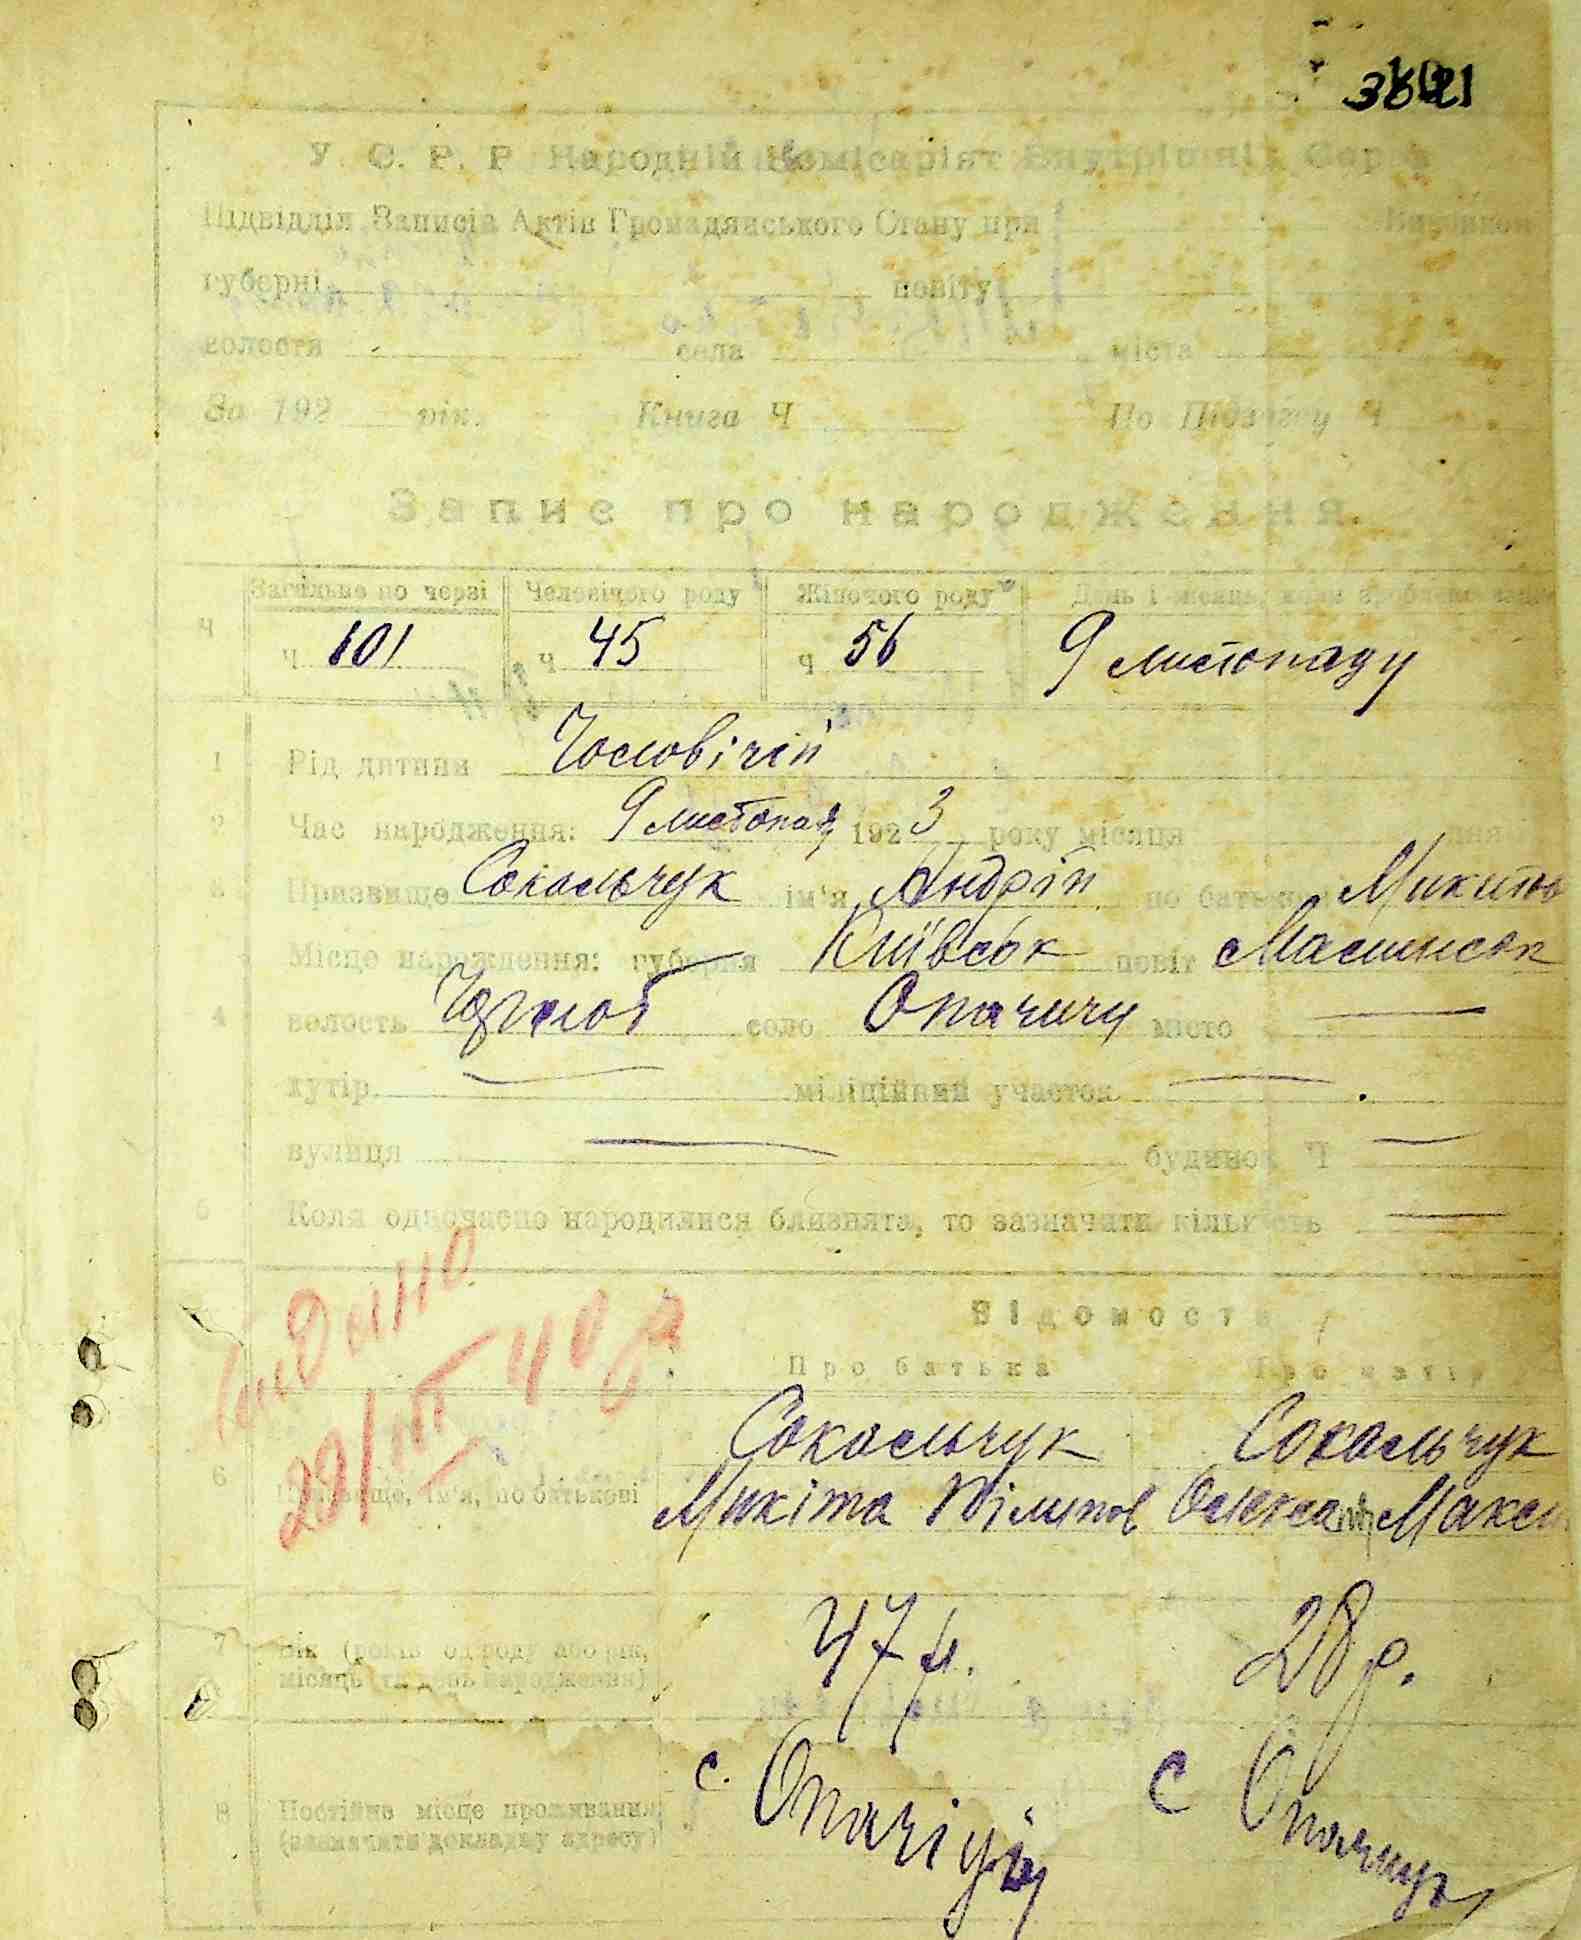 У. С. Р. Р. Народній Комісаріят Внутрішніх Справ
Підвідділ Записів Актів Громадянського Стану при Виконком
губерні повіту
волости села міста
За 192 рік. Книга Ч По Підвідділу Ч
Запис про народження.
Загальне по черзі Человічого роду Жіночого роду День і місяць, коли зроблено запис
Ч ч 101 ч 45 ч 56 9 листопаду
1 Рід дитини Чоловічій
2 Час народження: 9 листопад 1923 року місяця дня
3 Призвище Сокальчук ім'я Андрій по батькові Микитов
Місце народження: губерня Київськ повіт
4 волость село Опачичи місто
хутір міліційний участок
вулиця будинок Ч
5 Коли одночасно народилися близнята, то зазначити кількість
видано
29/III 40 р
Відомости
Про батька Про матір
Сокальчук Сокальчук
6 Призвище, ім'я, по батькові Микіта Пілипов Макси
7 Вік (років од роду або рік, 47 р. 28 р.
місяць та день народження)
8 Постійне місце проживання с. с
(зазначити докладну адресу)